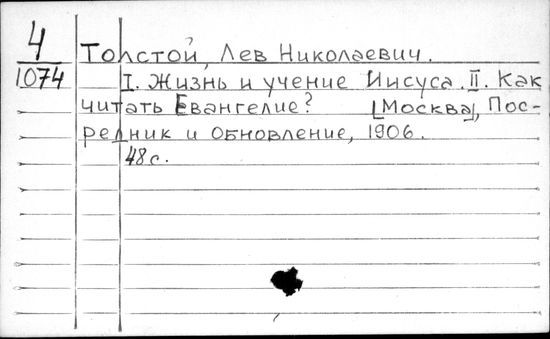 4
1074
Толстой, Лев Николаевич.
I. Жизнь и учение Иисуса. II. Как
читать Евангелие? [Москва], Пос-
редник и Обновление, 1906.
48 с.